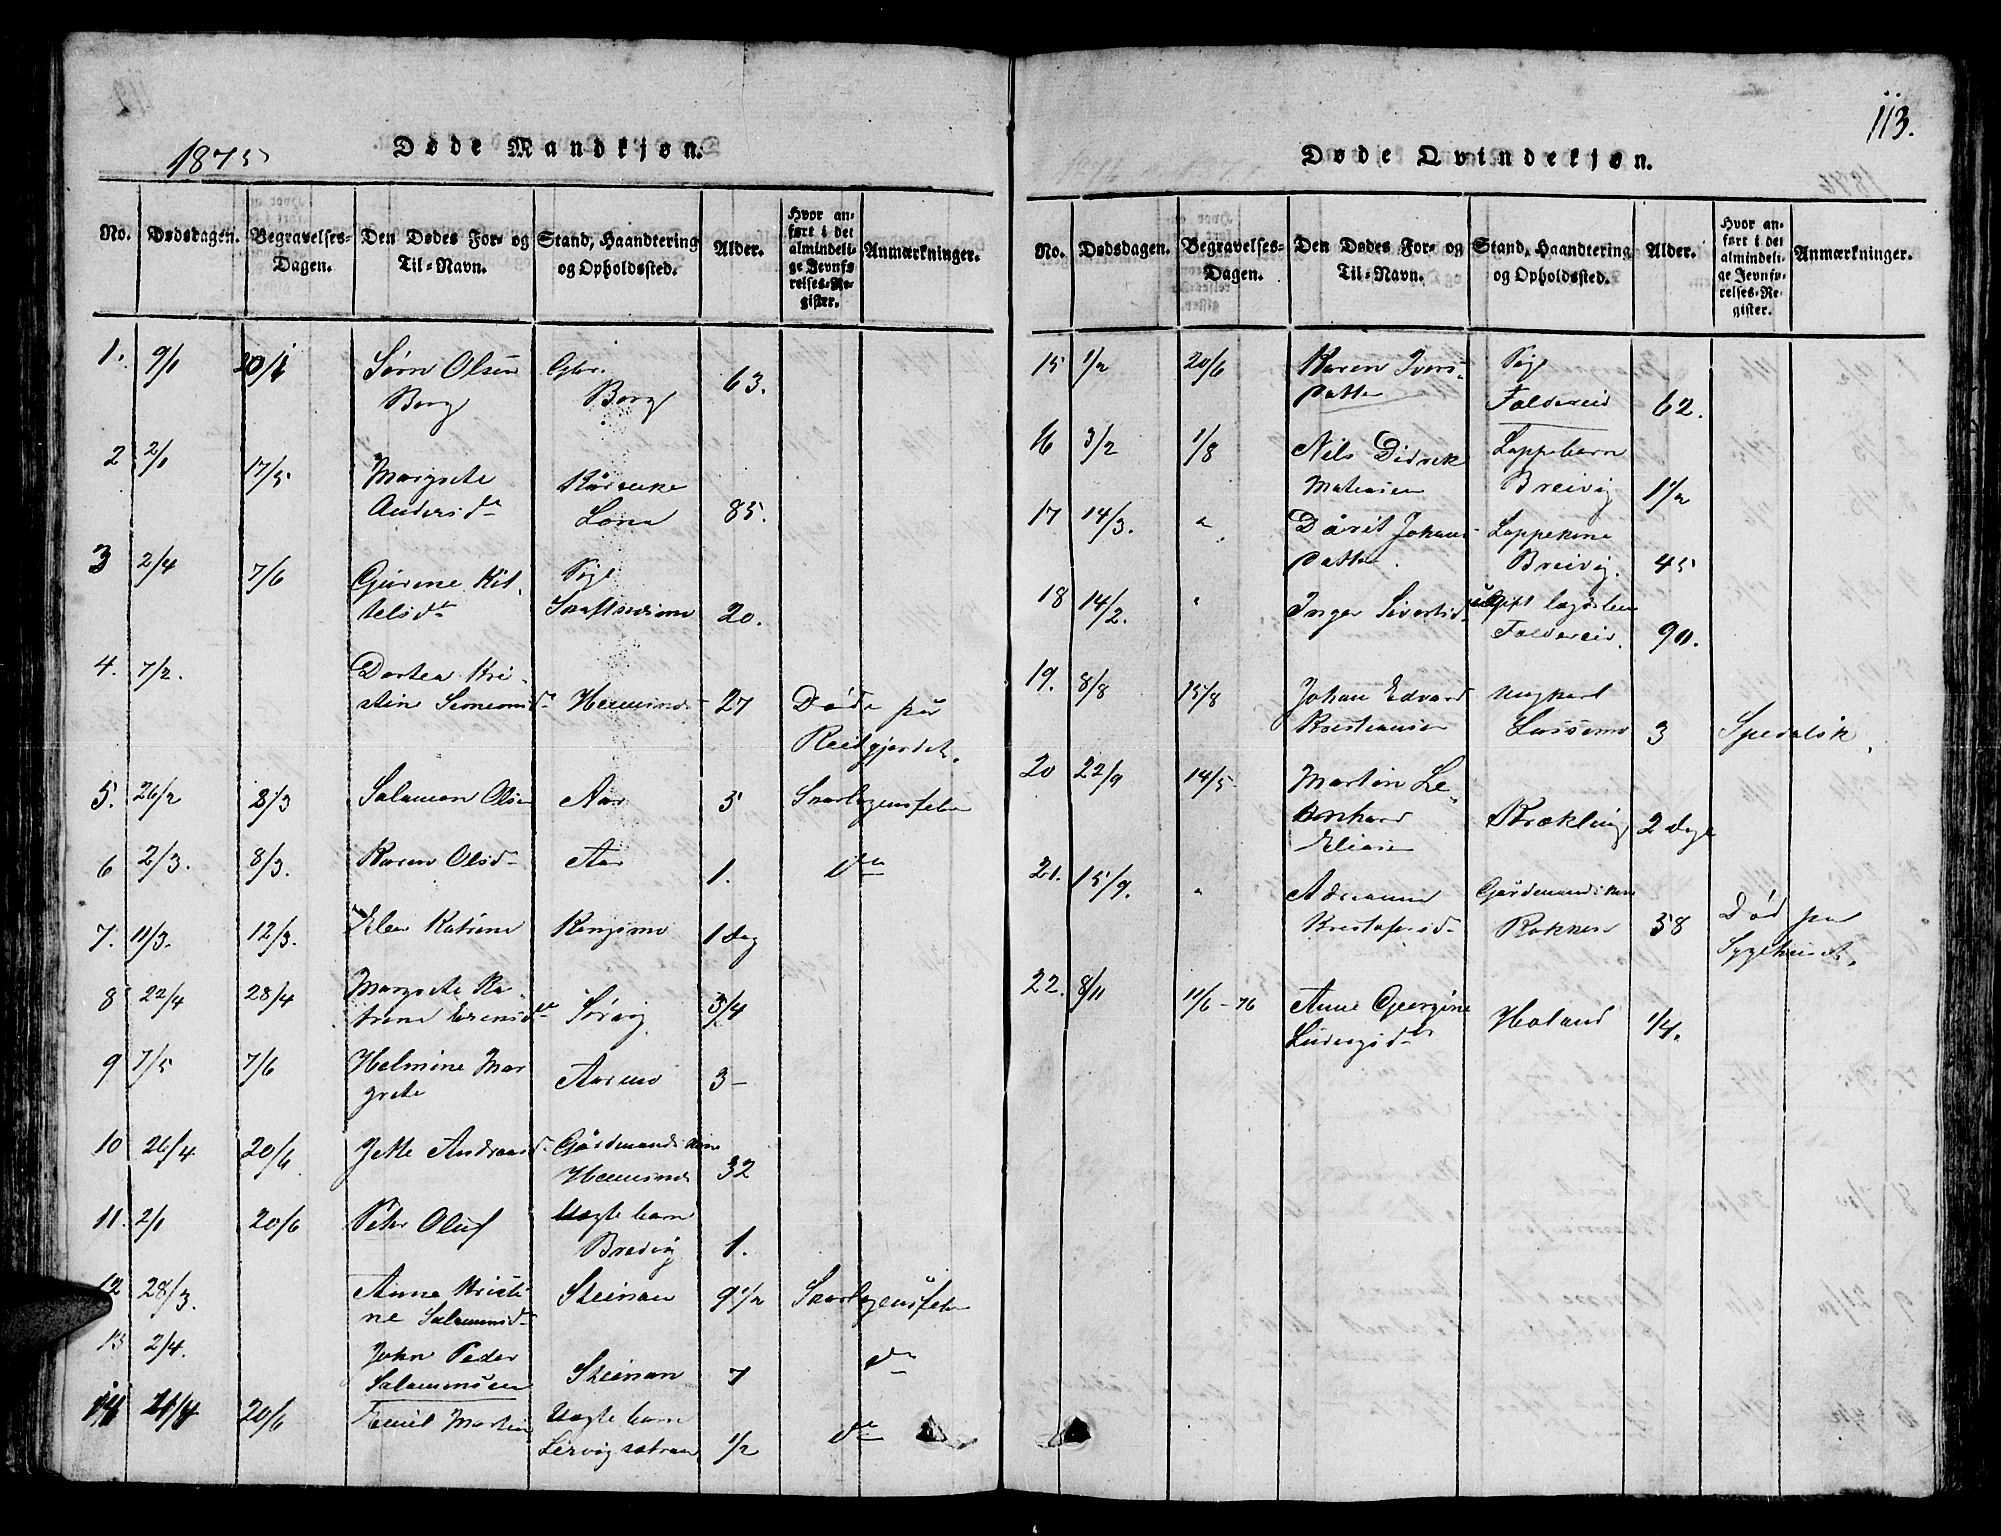 113.
1875
Døde Mandkjøn.
No. Dødsdagen. Begravelses-Dagen. Den Dødes For- og Til-Navn. Stand, Haandtering og Opholdssted. Alder. Hvor anført i det almindelige Jevnførelses-Register. Anmærkninger.
1. 9/1 20/1 Sørn Olsen Gbr.
Borg Borg 63.
2 2/1 17/5 Margrete
Andersd. Lona 85.
3 2/4 7/6 Gurine Kit-
telsd. Pige 20.
4. 7/2. Dortea Kri-
stine Simonsd. 27 Døde paa
Reitgjerdet.
5. 26/2 8/3 Salamon Olsen Aar 5 Skarlagensfeber
6 2/3. 8/3. Karen Olsd. Aar 1. do
7. 11/3. 12/3. Elen Katrine Kongsmo 1 dag
8 22/4 28/4 Margrete Ka-
trine Sørvig 3/4
9 7/5 7/6 Helmine Mar
grete Aarmo 3
10 26/4 20/6 Jette Andreasd. Gårdmandskone
32
11. 2/1 20/6 Peter Oluf Uegte barn
Breivig 1.
12 28/3. Anne Kristi
ne Salamonsd. Steinan 9 1/2 Skarlagensfeber
13 2/4. John Peder
Salamonsen Steinan 7 do
14 21/4 20/6 Emil Martin Uegte barn
1/2 do
Døde Qvindekjøn.
No. Dødsdagen. Begravelses-Dagen. Den Dødes For- og Til-Navn. Stand, Haandtering og Opholdssted. Alder. Hvor anført i det almindelige Jevnførelses-Register. Anmærkninger.
15 1/2 20/6 Karen Ivers-
datter Pige
Foldereid 62.
16 3/2 1/8 Nils Didrik
Matiasen Lappebarn
Breivig 1 1/2
17 14/3. " Dårit Johans-
datter. Lappekone
Breivig. 45
18 14/2. " Inger Sivertsd. ugift lægdslem
Foldereid. 90.
19. 8/8 15/8 Johan Edvard
Kristiansen ungkarl
3 Spedalsk.
20 22/9 14/5 Martin Le-
onhard
Eliasen Krækling 2 dage
21. 15/9. " Adrianna
Kristofersd. Gårdmandskone
58 Død paa
Sygehuset.
22. 8/11 11/6-76 Anne Georgine
Ludvigsd. Høland 1/4.